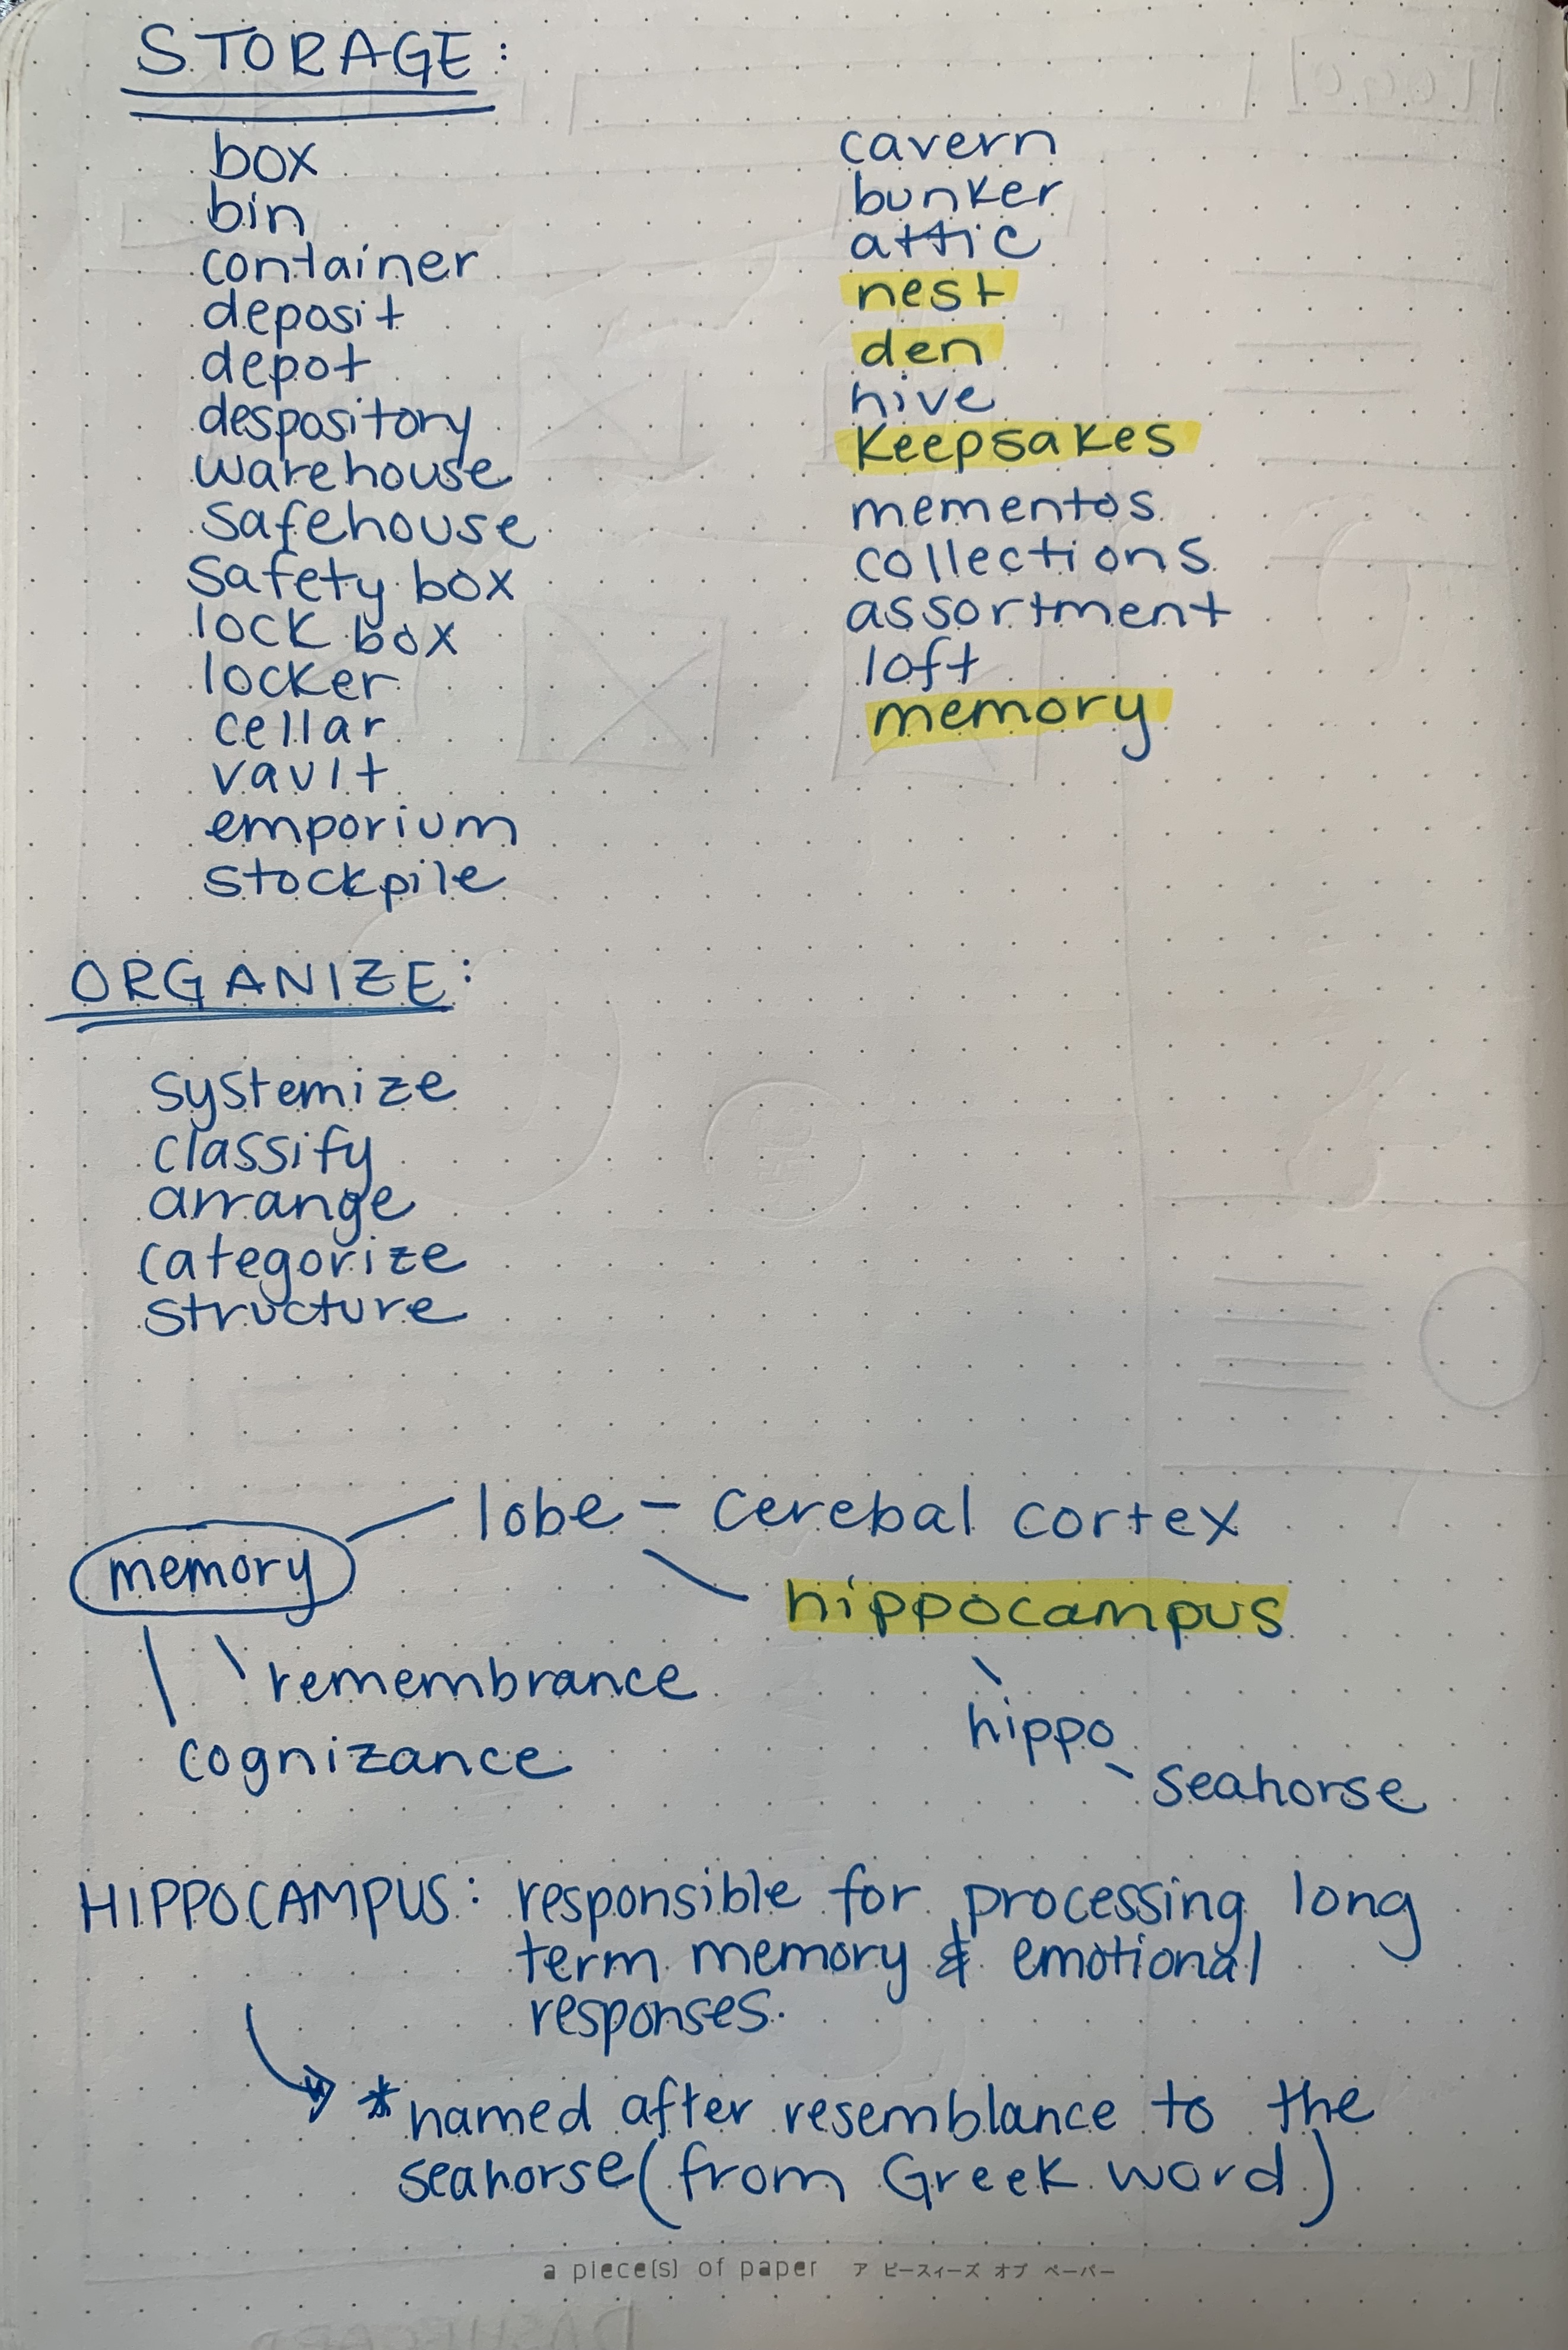 STORAGE:
box
bin
container
deposit
depot
despository
warehouse
safehouse
safety box
lock box
locker
cellar
vault
emporium
stockpile
cavern
bunker
attic
nest
den
hive
keepsakes
mementos
collections
assortment
loft
memory
ORGANIZE:
systemize
classify
arrange
categorize
structure
memory
lobe - cerebal cortex
hippocampus
remembrance
cognizance
hippo
seahorse
HIPPOCAMPUS: responsible for processing long
term memory & emotional
responses.
*named after resemblance to the
seahorse (from Greek word)
a piece(s) of paper ア ピースィーズ オブ ペーパー